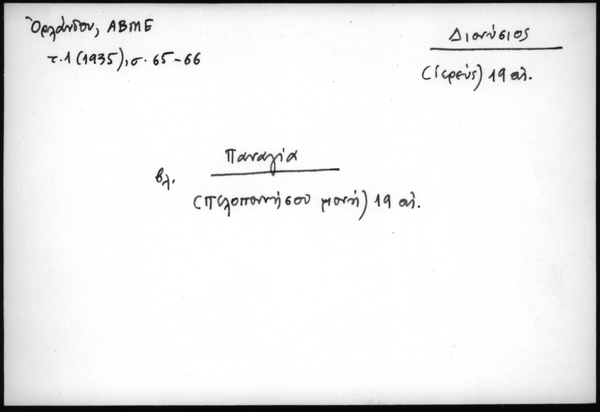 Ὀρλάνδου, ΑΒΜΕ
τ.1 (1935), σ. 65-66
Διονύσιος
(ἱερεύς) 19 αἰ.
βλ. Παναγία
(Πελοποννήσου μονή) 19 αἰ.